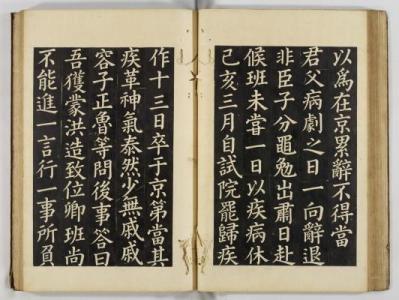 以為在京累辭不得當
君父病劇之日一向辭退
非臣子分黽勉出肅日赴
候班未嘗一日以疾病休
己亥三月自試院罷歸疾
作十三日卒于京第當其
疾革神氣泰然少無戚戚
容子正魯等問後事答曰
吾獲蒙洪造致位卿班尚
不能進一言行一事所負